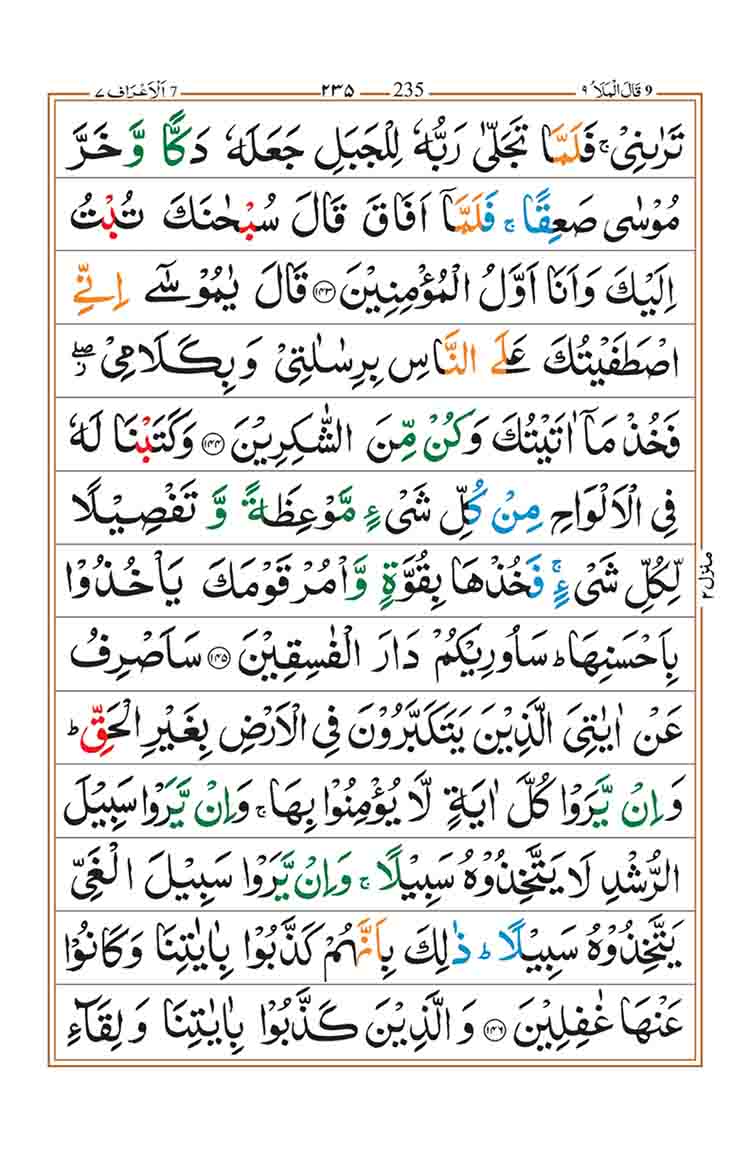 ٩ قَالَ الْمَلَاُ 9 235 ٢٣٥ 7 اَلْاَعْرَاف ٧
تَرٰىنِیْ ۚ فَلَمَّا تَجَلّٰی رَبُّهٗ لِلْجَبَلِ جَعَلَهٗ دَكًّا وَّ خَرَّ
مُوْسٰی صَعِقًا ۚ فَلَمَّاۤ اَفَاقَ قَالَ سُبْحٰنَكَ تُبْتُ
اِلَیْكَ وَاَنَا اَوَّلُ الْمُؤْمِنِیْنَ ﴿۱۴۳﴾ قَالَ یٰمُوْسٰۤی اِنِّی
اصْطَفَیْتُكَ عَلَی النَّاسِ بِرِسٰلٰتِیْ وَبِكَلَامِیْ ۖؗ
فَخُذْ مَاۤ اٰتَیْتُكَ وَكُنْ مِّنَ الشّٰكِرِیْنَ ﴿۱۴۴﴾ وَكَتَبْنَا لَهٗ
فِی الْاَلْوَاحِ مِنْ كُلِّ شَیْءٍ مَّوْعِظَةً وَّ تَفْصِیْلًا
لِّكُلِّ شَیْءٍ ۚ فَخُذْهَا بِقُوَّةٍ وَّاْمُرْ قَوْمَكَ یَاْخُذُوْا
بِاَحْسَنِهَا ؕ سَاُورِیْكُمْ دَارَ الْفٰسِقِیْنَ ﴿۱۴۵﴾ سَاَصْرِفُ
عَنْ اٰیٰتِیَ الَّذِیْنَ یَتَكَبَّرُوْنَ فِی الْاَرْضِ بِغَیْرِ الْحَقِّ ؕ
وَاِنْ یَّرَوْا كُلَّ اٰیَةٍ لَّا یُؤْمِنُوْا بِهَا ۚ وَاِنْ یَّرَوْا سَبِیْلَ
الرُّشْدِ لَا یَتَّخِذُوْهُ سَبِیْلًا ۚ وَاِنْ یَّرَوْا سَبِیْلَ الْغَیِّ
یَتَّخِذُوْهُ سَبِیْلًا ؕ ذٰلِكَ بِاَنَّهُمْ كَذَّبُوْا بِاٰیٰتِنَا وَكَانُوْا
عَنْهَا غٰفِلِیْنَ ﴿۱۴۶﴾ وَالَّذِیْنَ كَذَّبُوْا بِاٰیٰتِنَا وَ لِقَآءِ
منزل ٢